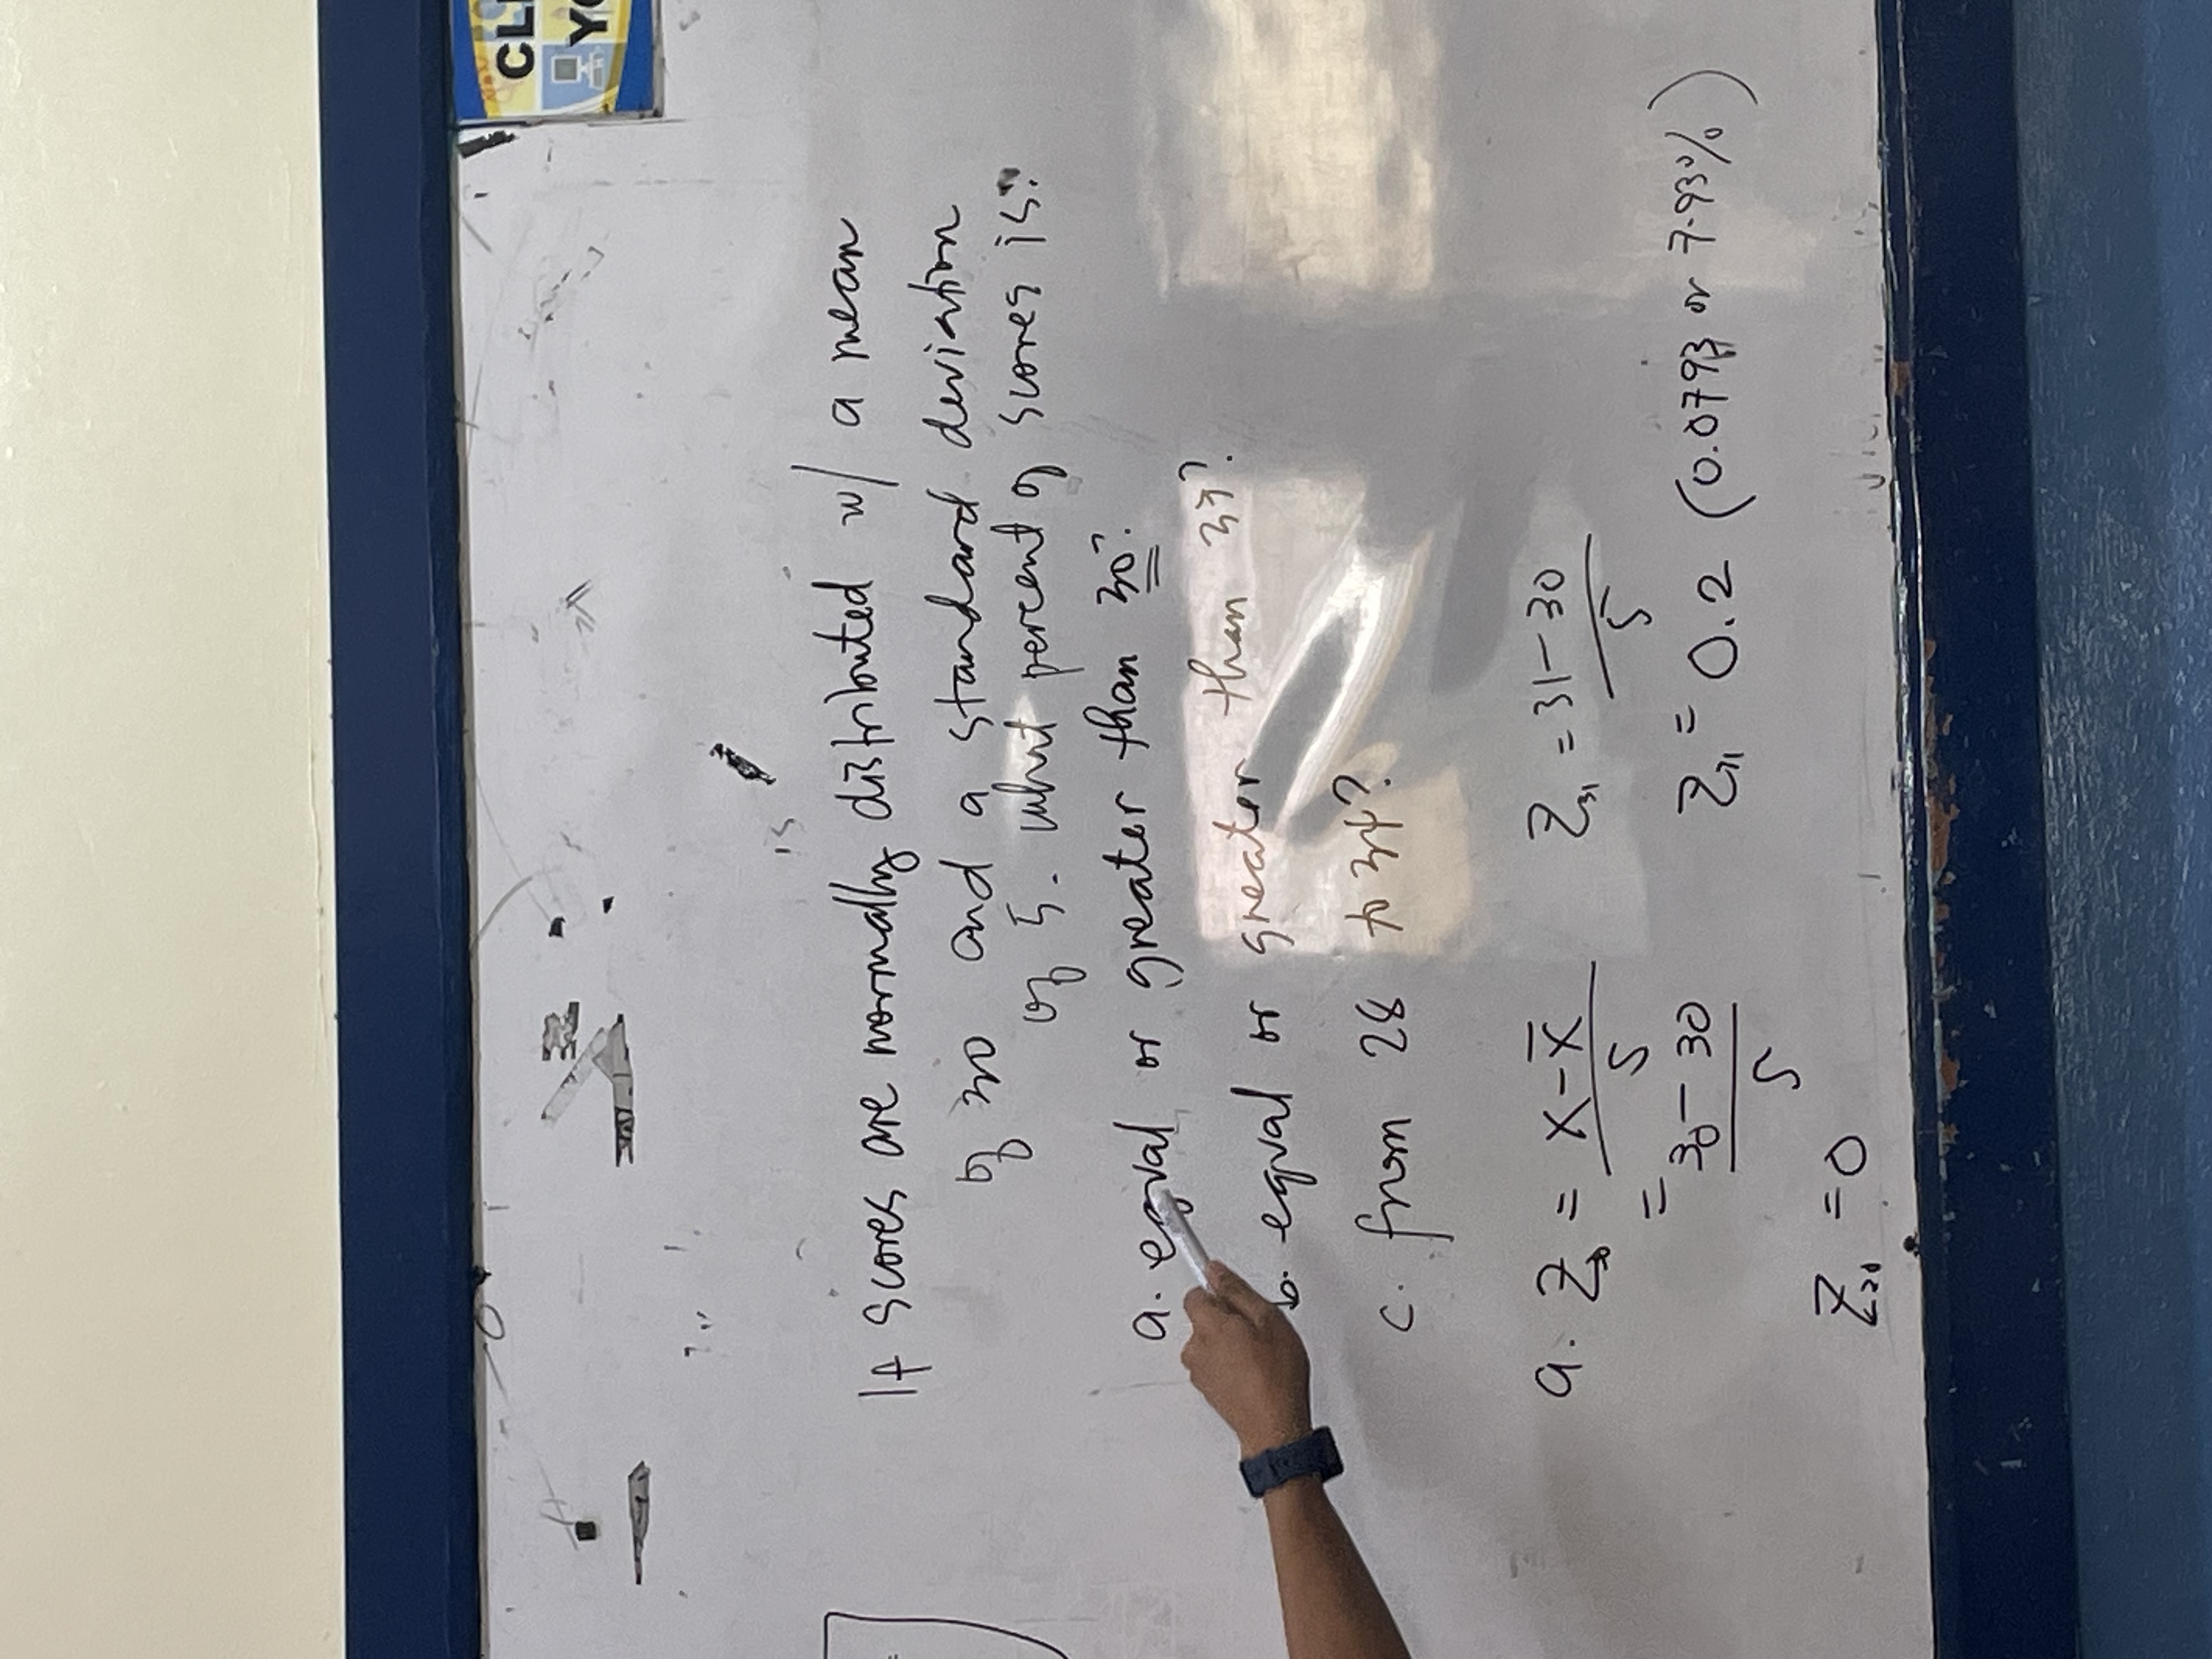 If scores are normally distributed w/ a mean
of 30 and a standard deviation
of 5. what percent of scores is:
a. equal or greater than 30?
b. equal or greater than 37?
c. from 28 to 34?
a. Z30 = X - X̄ / S
= 30 - 30 / 5
Z30 = 0
Z31 = 31 - 30 / 5
Z31 = 0.2 (0.0793 or 7.93%)